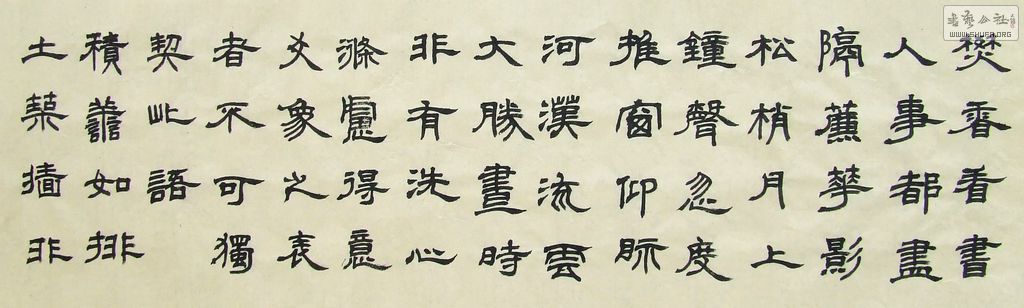 焚香看書
人事都盡
隔蕉華影
松梢月上
鐘聲忽度
推窗仰眎
河漢流雲
大勝晝時
非有洗心
滌慮得意
爻象之表
者不可獨
契此語
積善如排
土築墻非
书艺公社
WWW.SHUFA.ORG